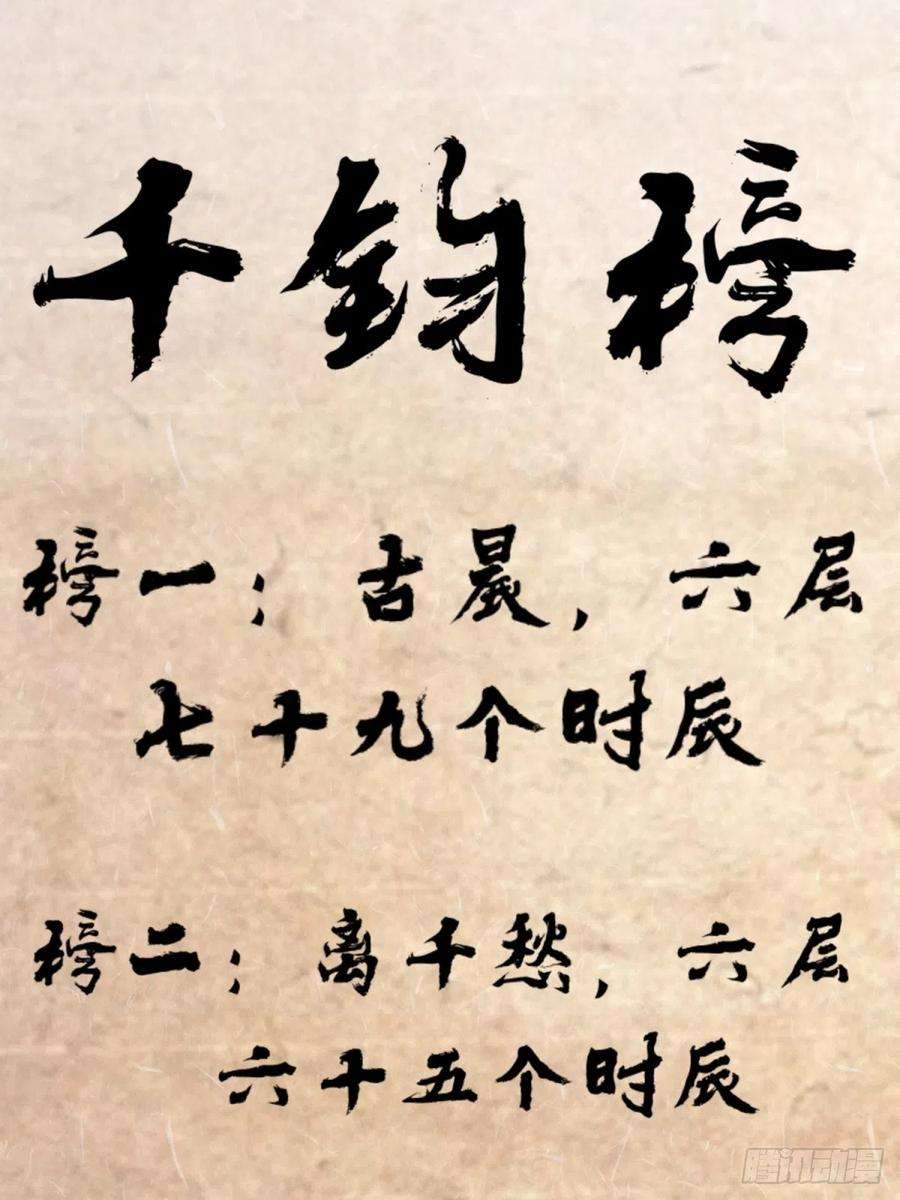 千钧榜
榜一；古晨，六层
七十九个时辰
榜二；离千愁，六层
六十五个时辰
腾讯动漫